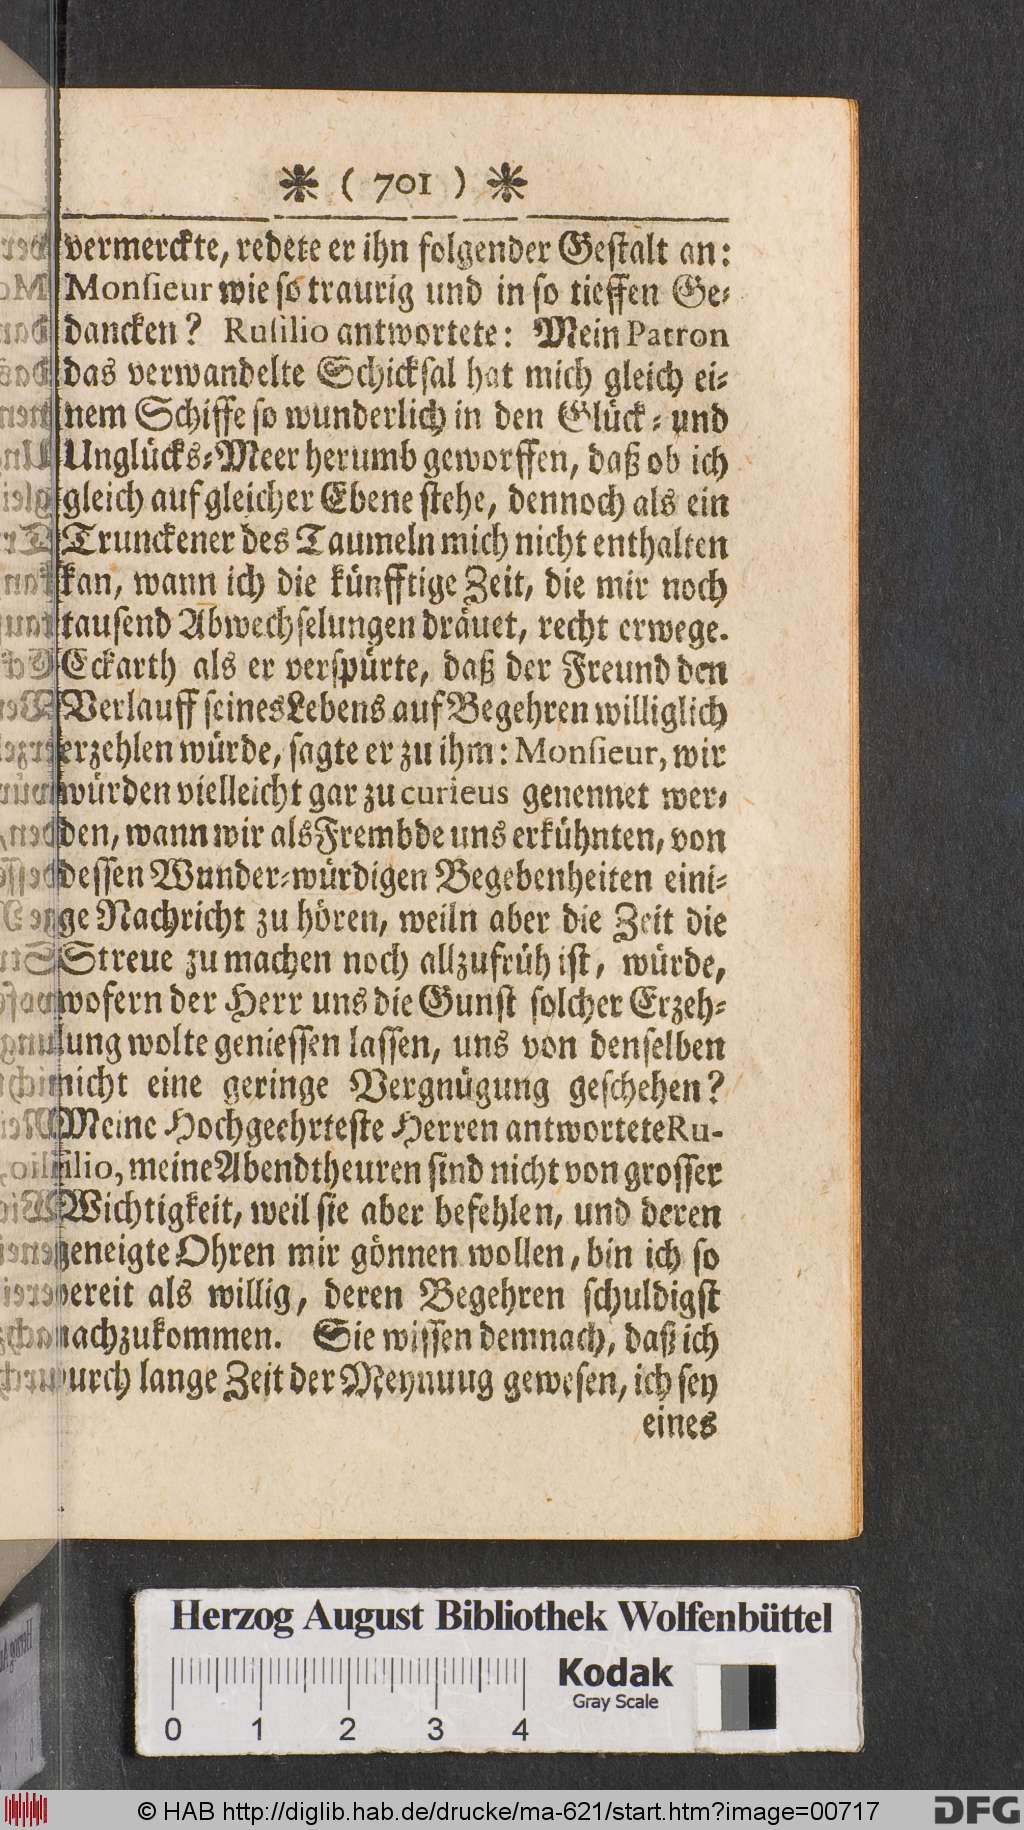 ❋ ( 701 ) ❋
vermerckte, redete er ihn folgender Gestalt an:
Monsieur wie so traurig und in so tieffen Ge-
dancken? Rusilio antwortete: Mein Patron
das verwandelte Schicksal hat mich gleich ei-
nem Schiffe so wunderlich in den Glück- und
Unglücks-Meer herumb geworffen, daß ob ich
gleich auf gleicher Ebene stehe, dennoch als ein
Trunckener des Taumeln mich nicht enthalten
kan, wann ich die künfftige Zeit, die mir noch
tausend Abwechselungen dräuet, recht erwege.
Eckarth als er verspürte, daß der Freund den
Verlauff seines Lebens auf Begehren williglich
erzehlen würde, sagte er zu ihm: Monsieur, wir
würden vielleicht gar zu curieus genennet wer-
den, wann wir als Frembde uns erkühnten, von
dessen Wunder-würdigen Begebenheiten eini-
ge Nachricht zu hören, weiln aber die Zeit die
Streue zu machen noch allzufrüh ist, würde,
wofern der Herr uns die Gunst solcher Erzeh-
lung wolte geniessen lassen, uns von denselben
nicht eine geringe Vergnügung geschehen?
Meine Hochgeehrteste Herren antwortete Ru-
silio, meine Abendtheuren sind nicht von grosser
Wichtigkeit, weil sie aber befehlen, und deren
geneigte Ohren mir gönnen wollen, bin ich so
bereit als willig, deren Begehren schuldigst
nachzukommen. Sie wissen demnach, daß ich
durch lange Zeit der Meynuug gewesen, ich sey
eines
Herzog August Bibliothek Wolfenbüttel
Kodak
Gray Scale
0 1 2 3 4
© HAB http://diglib.hab.de/drucke/ma-621/start.htm?image=00717
DFG